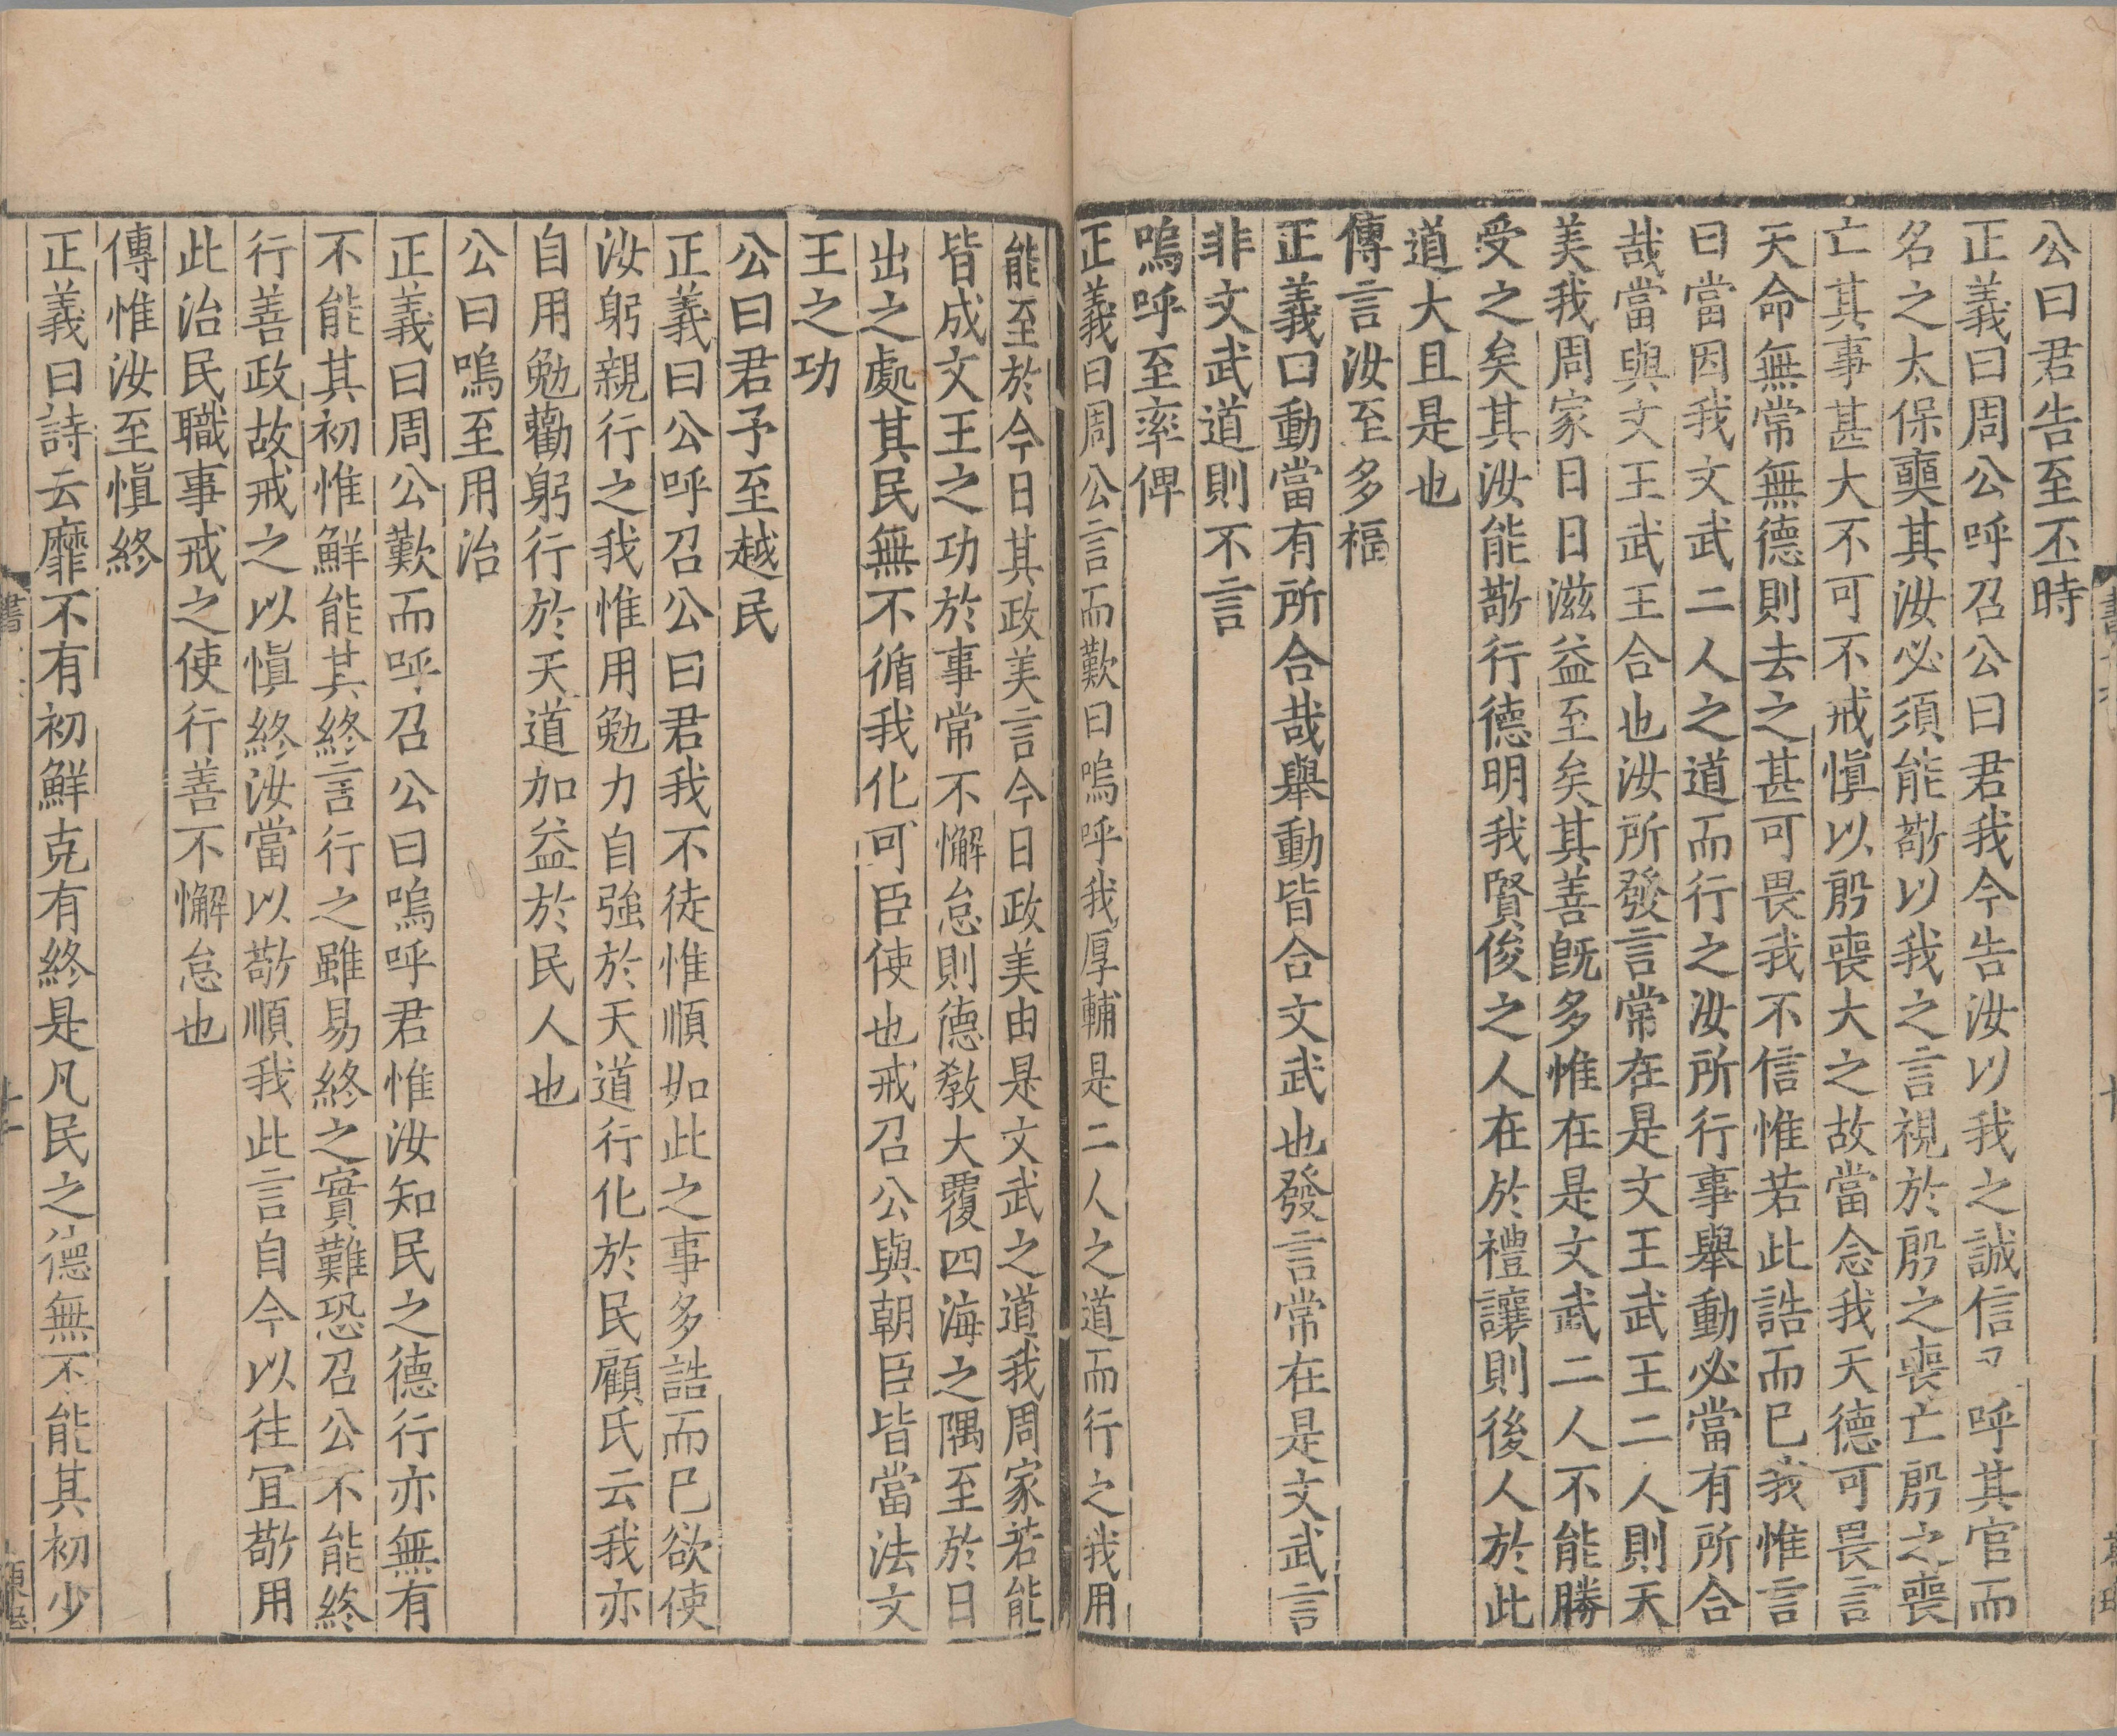 公曰君告至丕時
正義曰周公呼召公曰君我今告汝以我之誠信又呼其官而
名之太保奭其汝必須能敬以我之言視於殷之喪亡殷之喪
亡其事甚大不可不戒慎以殷喪大之故當念我天德可畏言
天命無常無德則去之甚可畏我不信惟若此誥而已我惟言
曰當因我文武二人之道而行之汝所行事舉動必當有所合
哉當與文王武王合也汝所發言常在是文王武王二人則天
美我周家日日滋益至矣其善既多惟在是文武二人不能勝
受之矣其汝能敬行德明我賢俊之人在於禮讓則後人於此
道大且是也
傳言汝至多福
正義曰動當有所合哉舉動皆合文武也發言常在是文武言
非文武道則不言
嗚呼至率俾
正義曰周公言而歎曰嗚呼我厚輔是二人之道而行之我用
能至於今日其政美言今日政美由是文武之道我周家若能
皆成文王之功於事常不懈怠則德教大覆四海之隅至於日
出之處其民無不循我化可臣使也戒召公與朝臣皆當法文
王之功
公曰君予至越民
正義曰公呼召公曰君我不徒惟順如此之事多誥而已欲使
汝躬親行之我惟用勉力自強於天道行化於民顧氏云我亦
自用勉勸躬行於天道加益於民人也
公曰嗚至用治
正義曰周公歎而呼召公曰嗚呼君惟汝知民之德行亦無有
不能其初惟鮮能其終言行之雖易終之實難恐召公不能終
行善政故戒之以慎終汝當以敬順我此言自今以往宜敬用
此治民職事戒之使行善不懈怠也
傳惟汝至慎終
正義曰詩云靡不有初鮮克有終是凡民之德無不能其初少